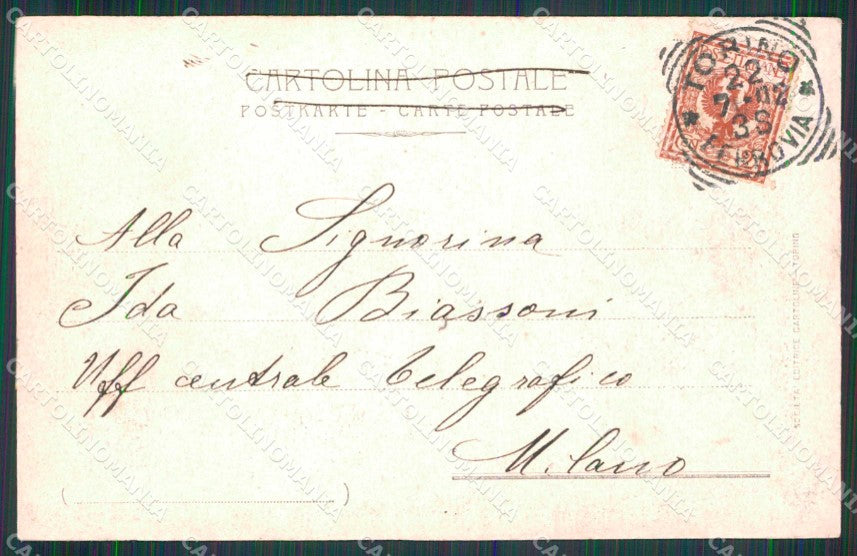 CARTOLINA POSTALE
POSTKARTE - CARTE POSTALE
TORINO
22
7-02
3S
FERROVIA
Alla Signorina
Ida Biassoni
Uff centrale telegrafico
Milano
CARTOLINOMANIA